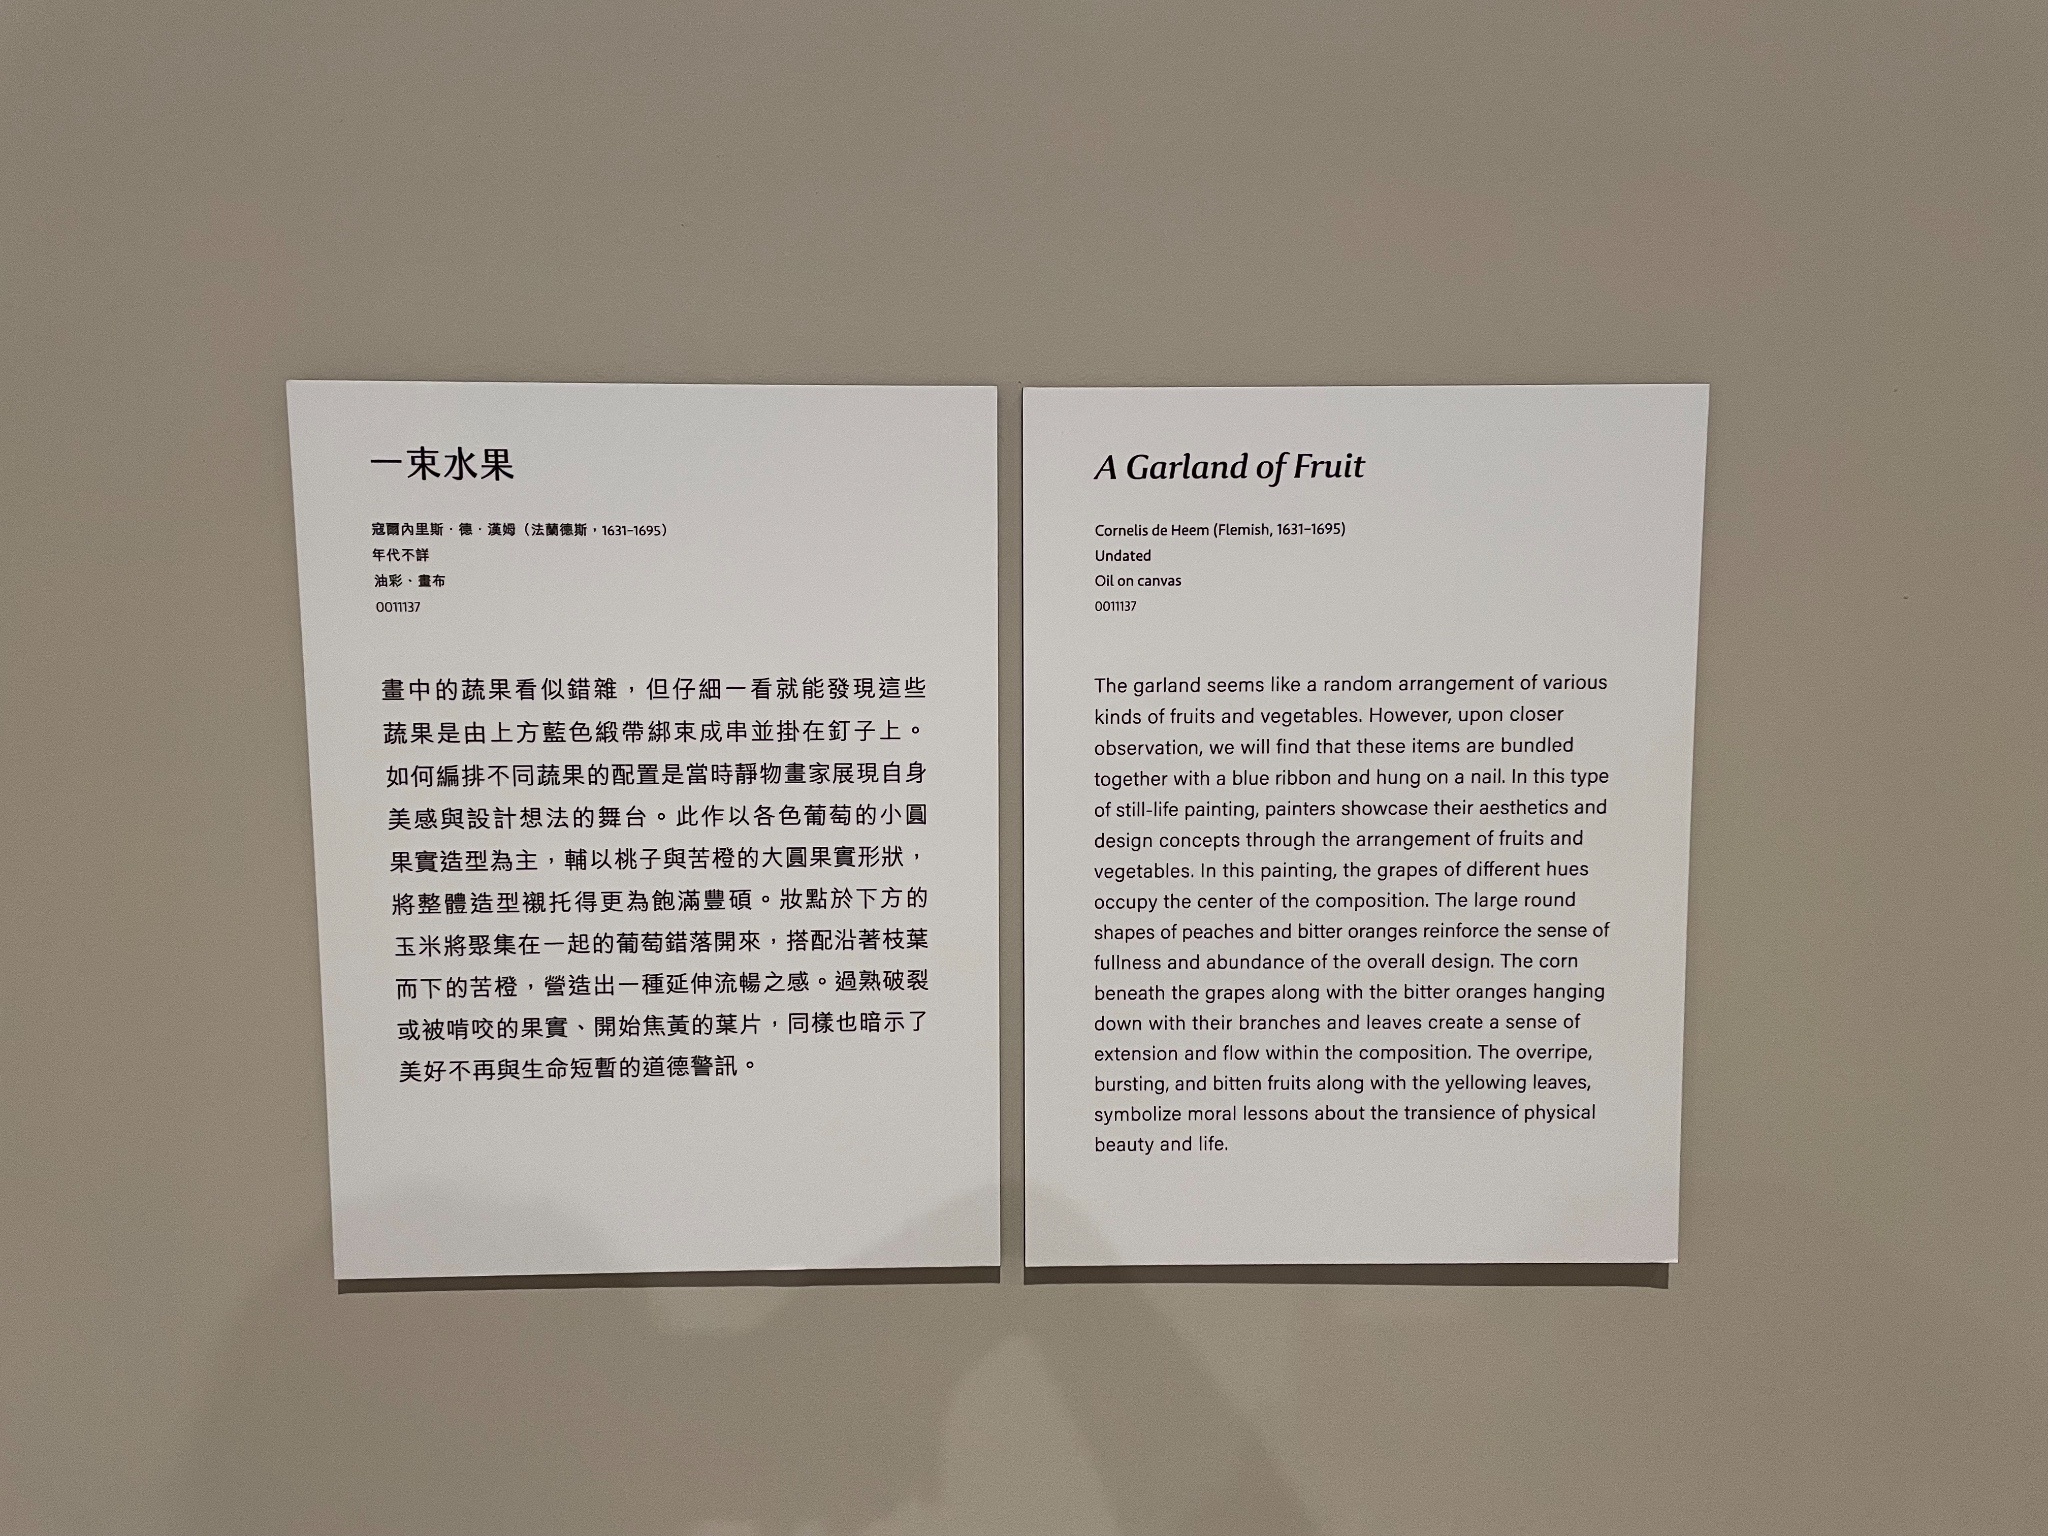 一束水果
寇爾內里斯．德．漢姆（法蘭德斯，1631-1695）
年代不詳
油彩．畫布
0011137
畫中的蔬果看似錯雜，但仔細一看就能發現這些
蔬果是由上方藍色緞帶綁束成串並掛在釘子上。
如何編排不同蔬果的配置是當時靜物畫家展現自身
美感與設計想法的舞台。此作以各色葡萄的小圓
果實造型為主，輔以桃子與苦橙的大圓果實形狀，
將整體造型襯托得更為飽滿豐碩。妝點於下方的
玉米將聚集在一起的葡萄錯落開來，搭配沿著枝葉
而下的苦橙，營造出一種延伸流暢之感。過熟破裂
或被啃咬的果實、開始焦黃的葉片，同樣也暗示了
美好不再與生命短暫的道德警訊。
A Garland of Fruit
Cornelis de Heem (Flemish, 1631-1695)
Undated
Oil on canvas
0011137
The garland seems like a random arrangement of various
kinds of fruits and vegetables. However, upon closer
observation, we will find that these items are bundled
together with a blue ribbon and hung on a nail. In this type
of still-life painting, painters showcase their aesthetics and
design concepts through the arrangement of fruits and
vegetables. In this painting, the grapes of different hues
occupy the center of the composition. The large round
shapes of peaches and bitter oranges reinforce the sense of
fullness and abundance of the overall design. The corn
beneath the grapes along with the bitter oranges hanging
down with their branches and leaves create a sense of
extension and flow within the composition. The overripe,
bursting, and bitten fruits along with the yellowing leaves,
symbolize moral lessons about the transience of physical
beauty and life.